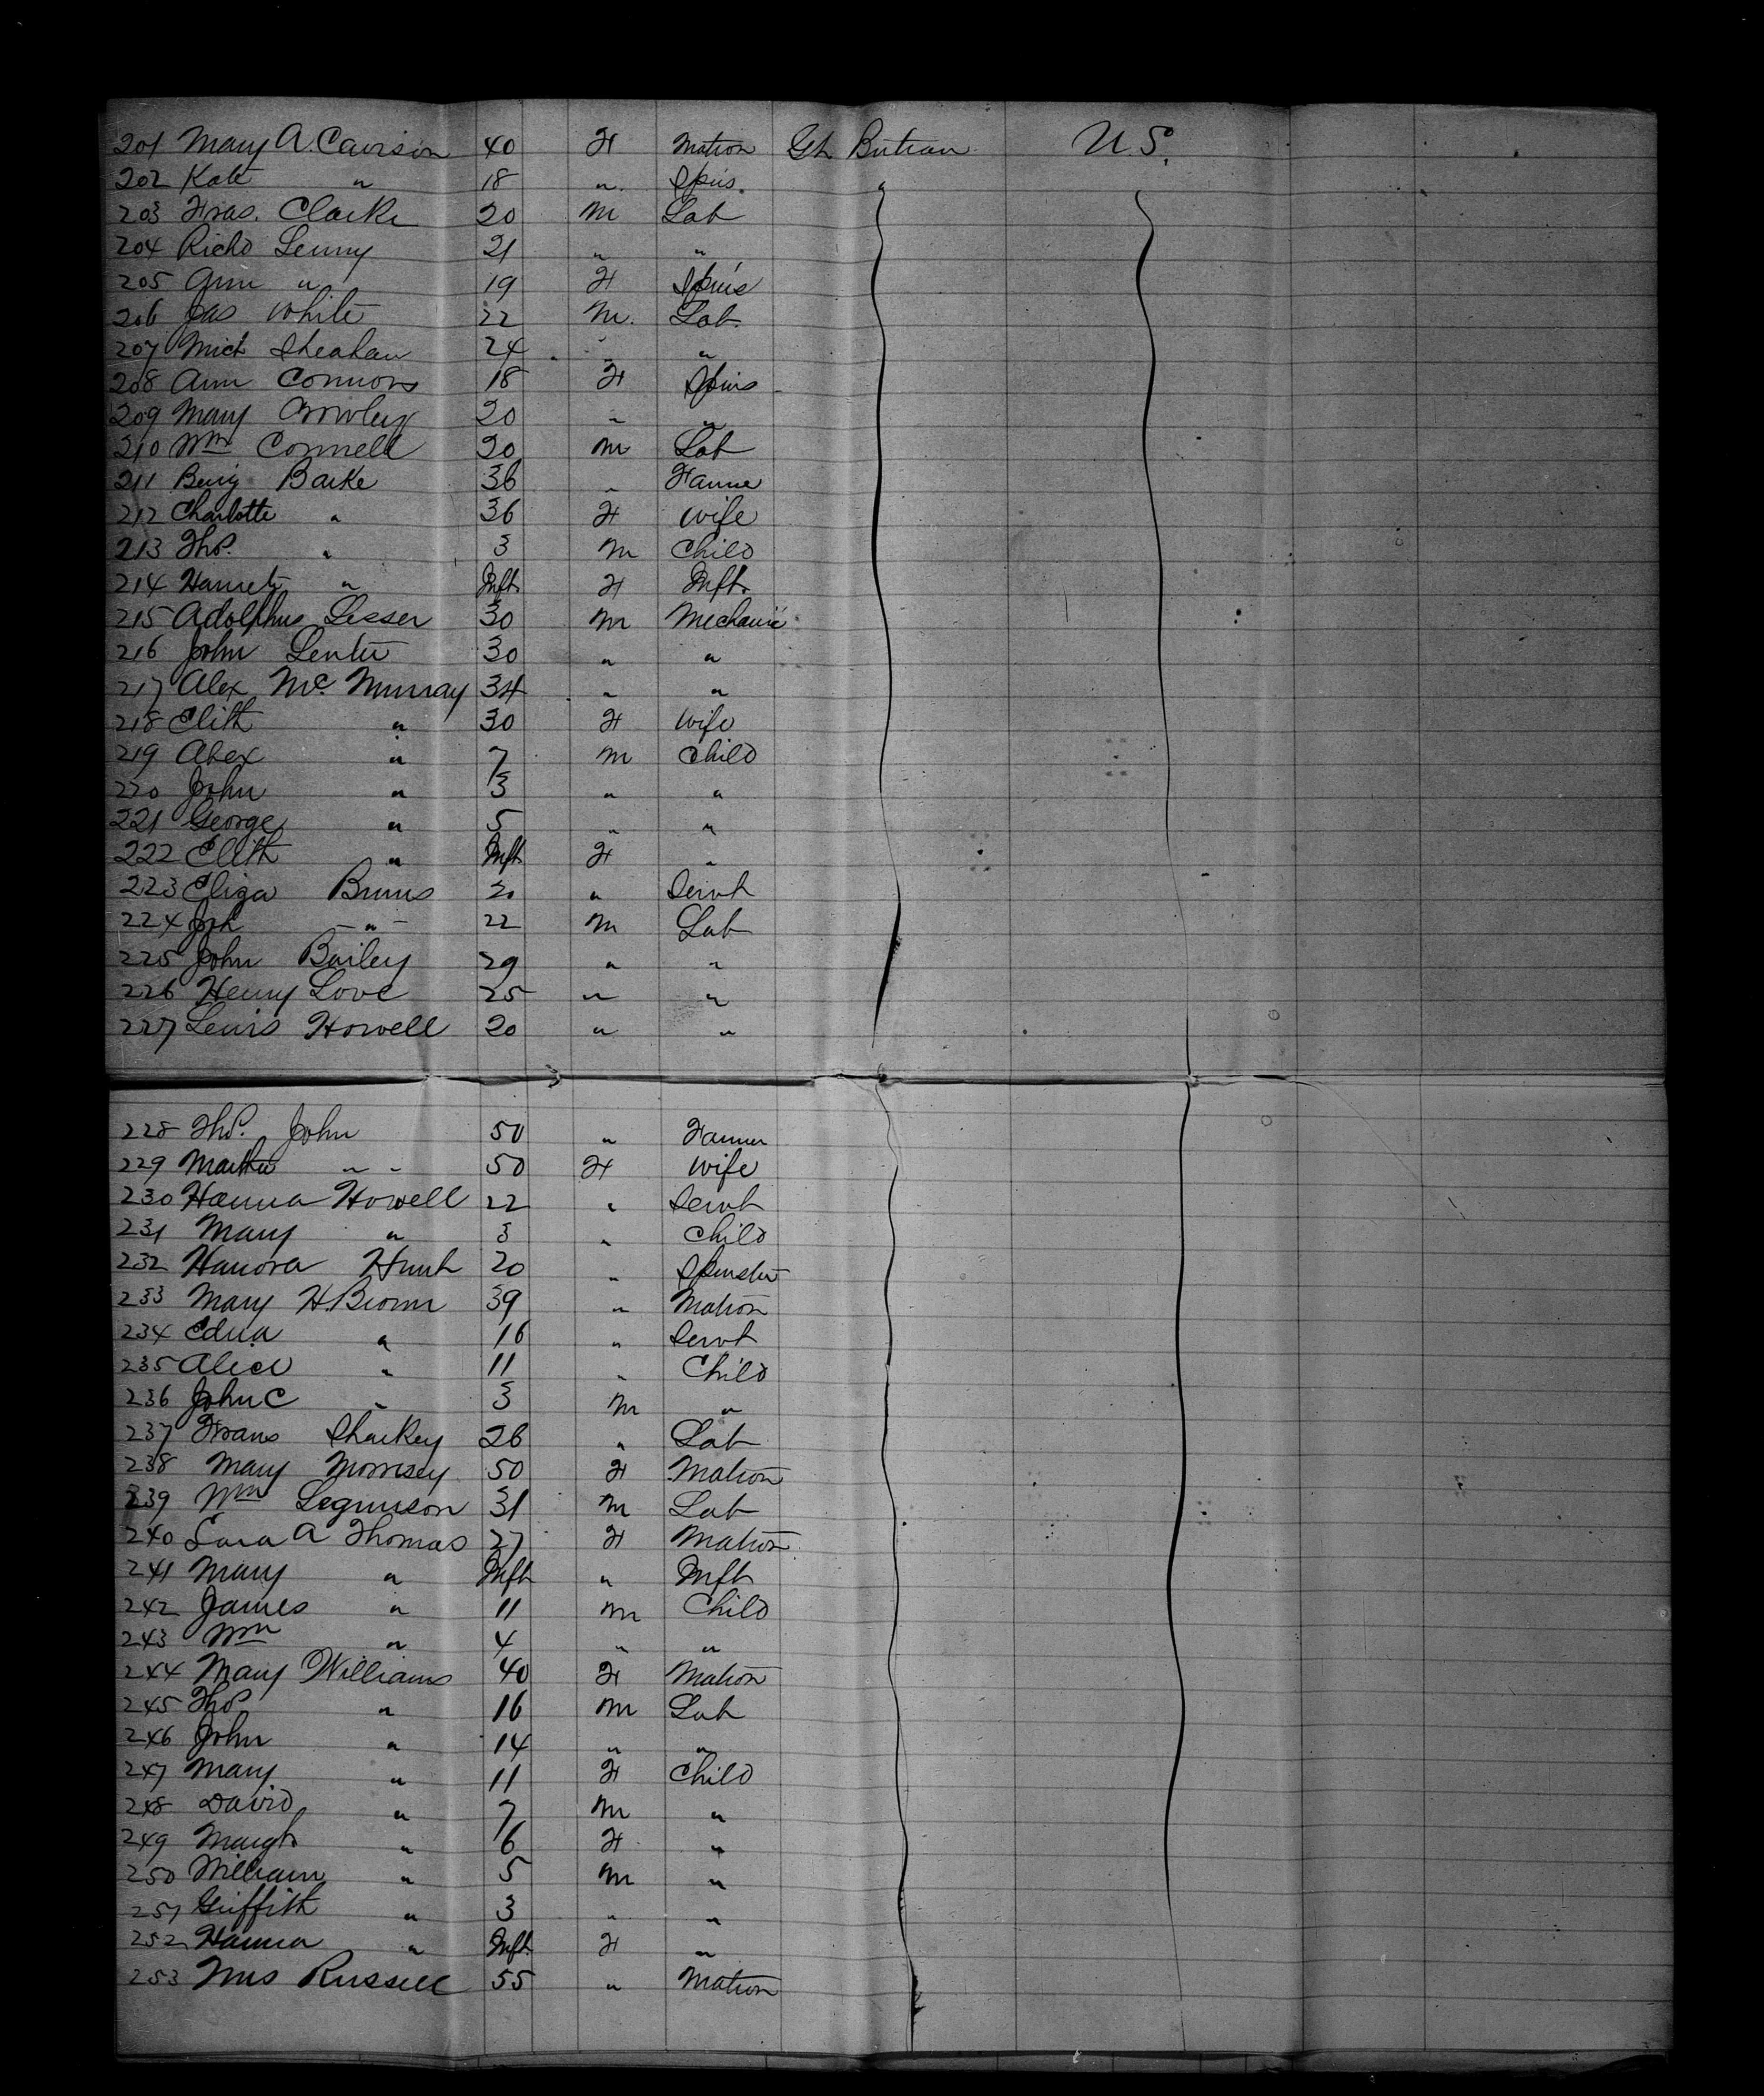 201 Mary A. Cavison 40 F Matron Gt Britain U.S.
202 Kate " 18 " Spins.
203 Fras. Clarke 20 M Lab
204 Richd Lenny 21 " "
205 Ann " 19 F Spins
206 Jas White 22 M. Lab.
207 Mich Sheahan 24 " "
208 Ann Connors 18 F Spins
209 Mary Crowley 20 " "
210 Wm Connell 20 M Lab
211 Benj Barke 36 " Farmer
212 Charlotte " 36 F Wife
213 Thos. " 3 M Child
214 Harriet " Inft. F Inft.
215 Adolphus Lesser 30 M Mechanic
216 John Lenter 30 " "
217 Alex Mc Murray 34 " "
218 Elith " 30 F Wife
219 Alex " 7 M Child
220 John " 3 " "
221 George " 5 " "
222 Elith " Inft F "
223 Eliza Bruns 20 " Servt
224 Joh " 22 M Lab
225 John Bailey 29 " "
226 Henry Love 25 " "
227 Lewis Howell 20 " "
228 Thos. John 50 " Farmer
229 Martha " " 50 F Wife
230 Hanna Howell 22 " Servt
231 Mary " 3 " Child
232 Hanora Hunt 20 " Spinster
233 Mary H. Brown 39 " Matron
234 Edna " 16 " Servt
235 Alice " 11 " Child
236 John C " 3 M "
237 Frans Sharkey 26 " Lab
238 Mary Morrisey 50 F Matron
239 Wm 31 M Lab
240 Sara A Thomas 27 F Matron
241 Mary " Inft " Inft
242 James " 11 M Child
243 Wm " 4 " "
244 Mary Williams 40 F Matron
245 Thos " 16 M Lab
246 John " 14 " "
247 Mary " 11 F Child
248 David " 7 M "
249 Margt " 6 F "
250 William " 5 M "
251 Griffith " 3 " "
252 Hanna " Inft. F "
253 Mrs Russell 55 " Matron